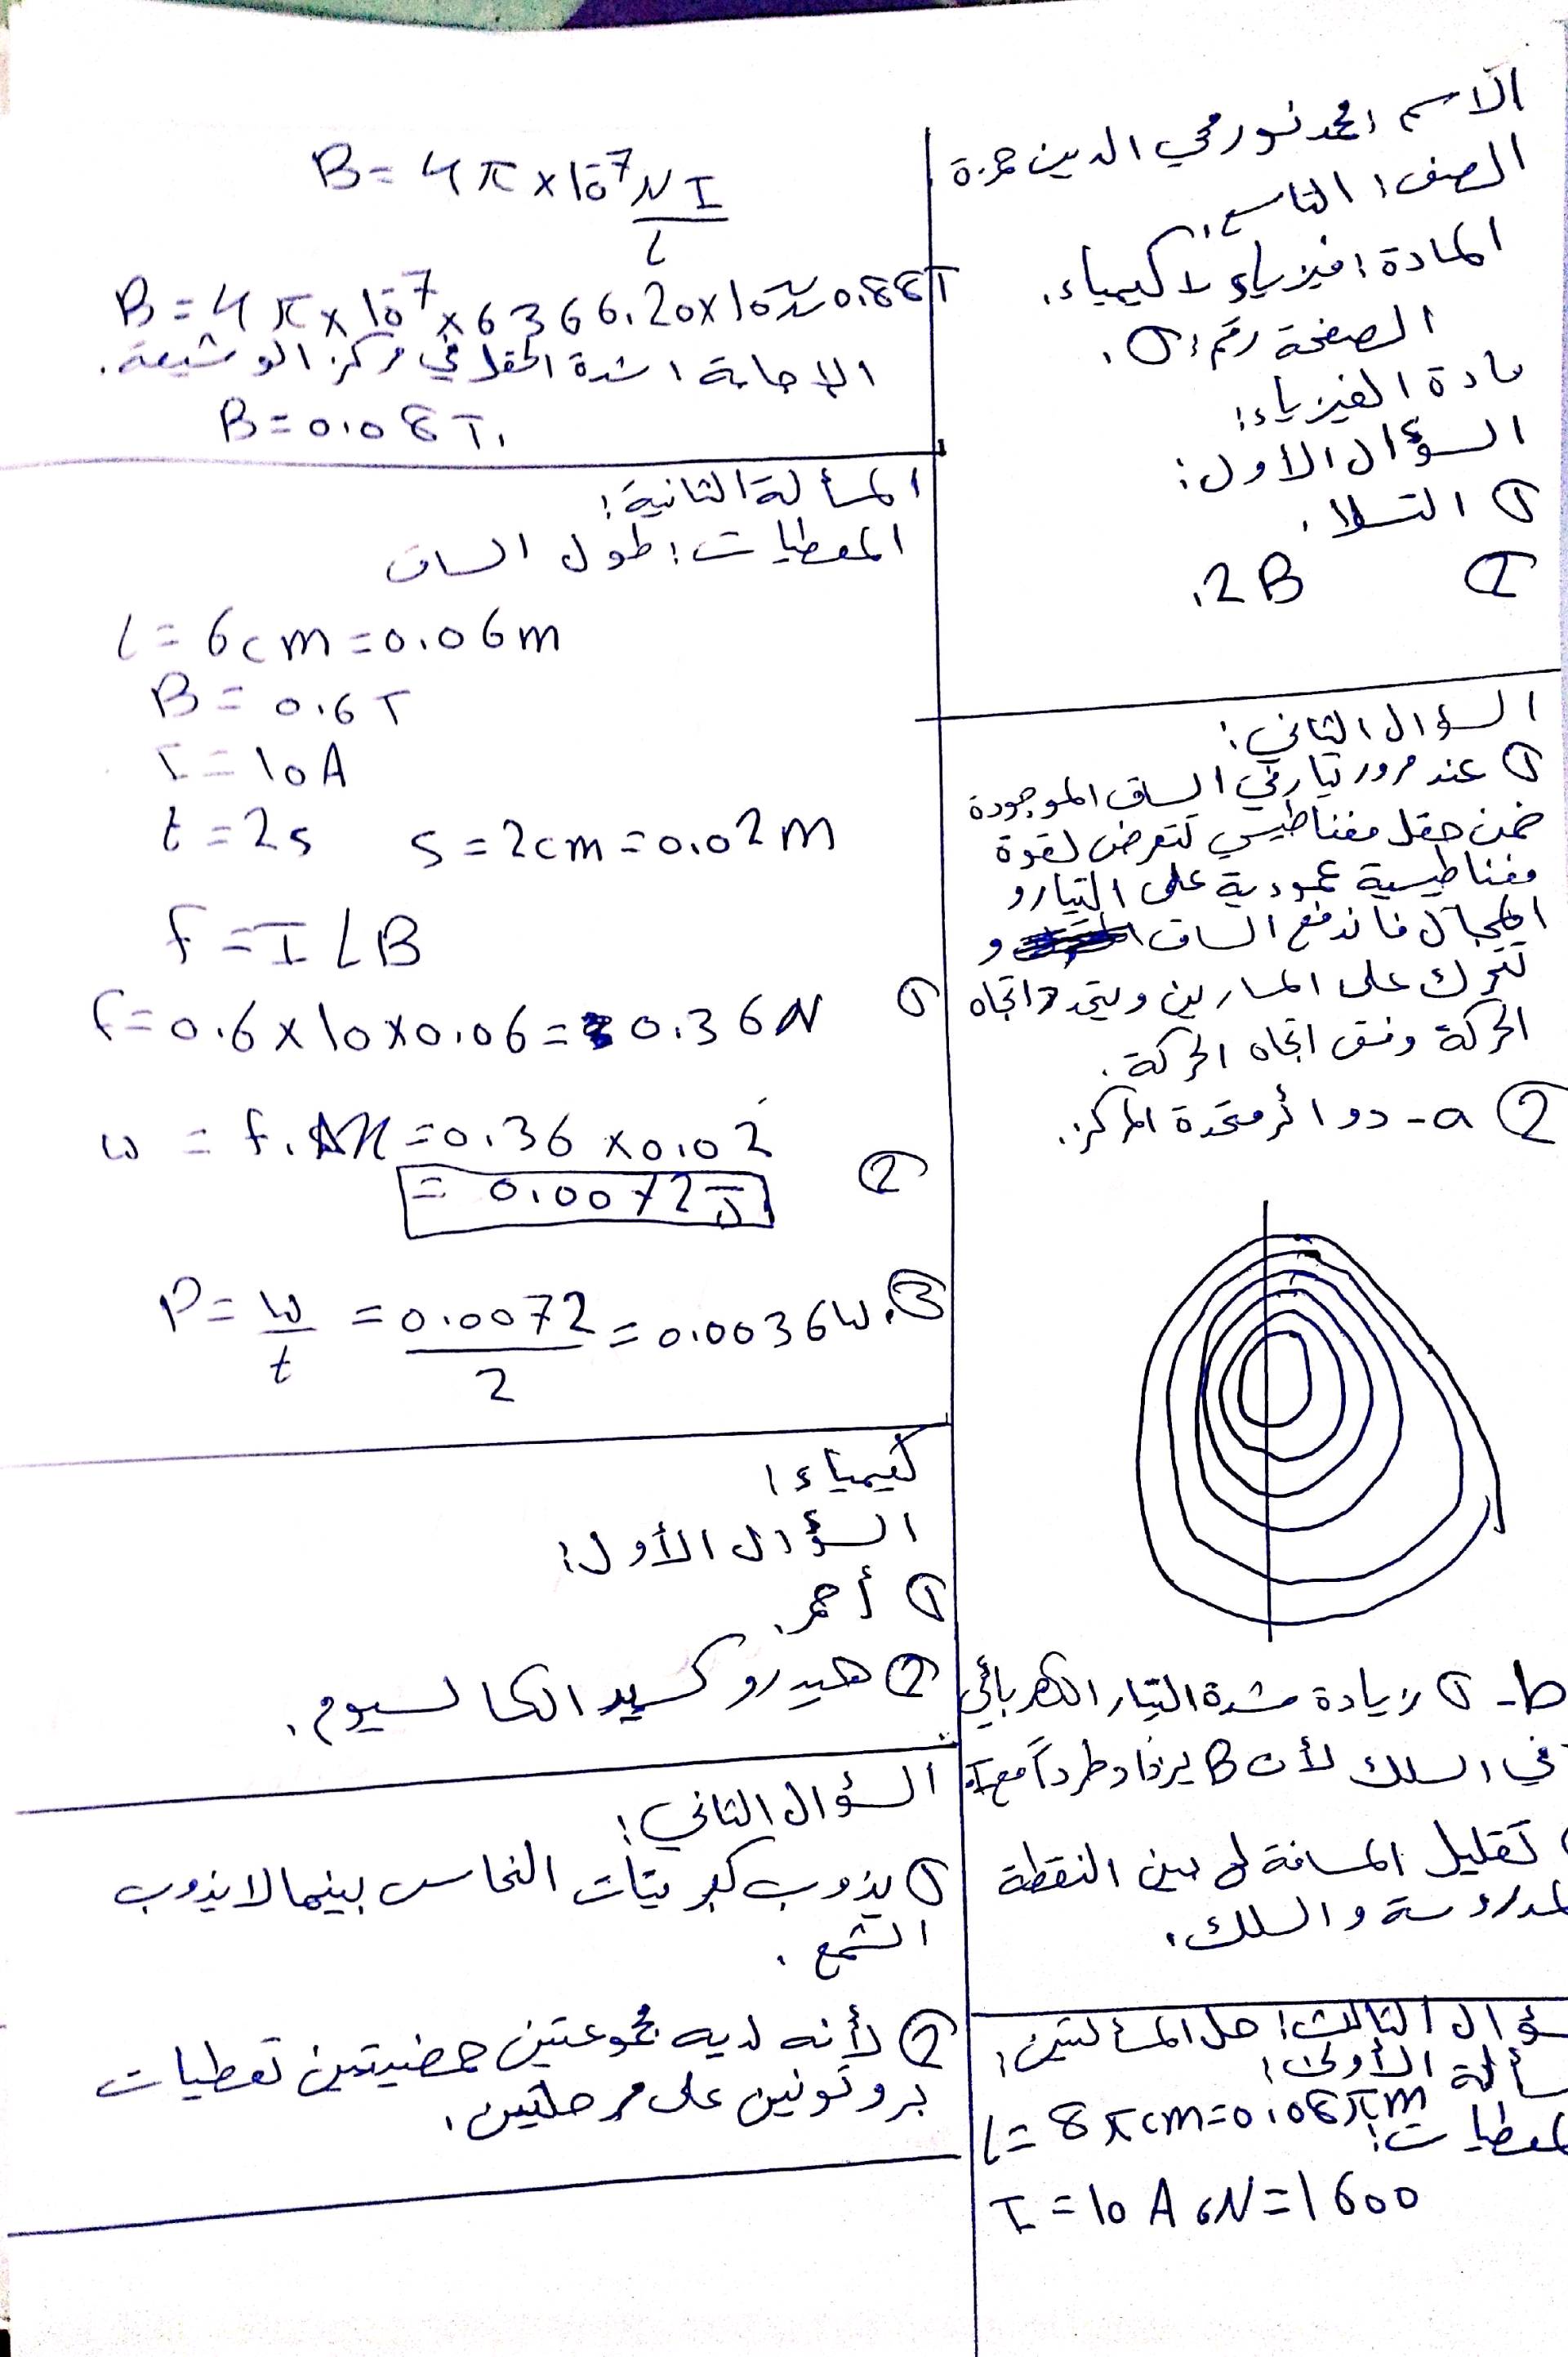 الاسم: محمد نور محي الدين حمزة
الصف: التاسع.
المادة: فيزياء لا كيمياء.
الصفحة رقم: ①.
مادة الفيزياء:
السؤال الأول:
① التسلا.
② 2B.
السؤال الثاني:
① عند مرور تيار في الساق الموجودة
ضمن حقل مغناطيسي تتعرض لقوة
مغناطيسية عمودية على التيار و
المجال فاندفع الساق و
تتحرك على المسارين ويتحدد اتجاه
الحركة وفق اتجاه الحركة.
② a- دوائر متحدة المركز.
b- ① زيادة شدة التيار الكهربائي
في السلك لأن B يزداد طرداً مع I.
تقليل المسافة بين النقطة
المدروسة والسلك.
سؤال الثالث: حل المسألتين:
سألة الأولى:
لمعطيات: l = 8π cm = 0.08π m
I = 10 A , N = 1600
B = 4π × 10⁻⁷ NI
l
B = 4π × 10⁻⁷ × 6366.20 × 10 ≈ 0.88T
الإجابة: شدة الحقل في مركز الوشيعة.
B = 0.08 T.
المسألة الثانية:
المعطيات: طول الساق
l = 6cm = 0.06m
B = 0.6 T
I = 10 A
t = 2s s = 2cm = 0.02 m
f = I L B
① f = 0.6 × 10 × 0.06 = 0.36 N
② w = f. Δx = 0.36 × 0.02
= 0.0072 J
③ P = w/t = 0.0072/2 = 0.0036 w.
كيمياء:
السؤال الأول:
① أحمر.
② هيدروكسيد الكالسيوم.
السؤال الثاني:
① يذوب كبريتات النحاس بينما لا يذوب
الشمع.
② لأنه لديه مجموعتين حمضيتين تعطيات
بروتونين على مرحلتين.